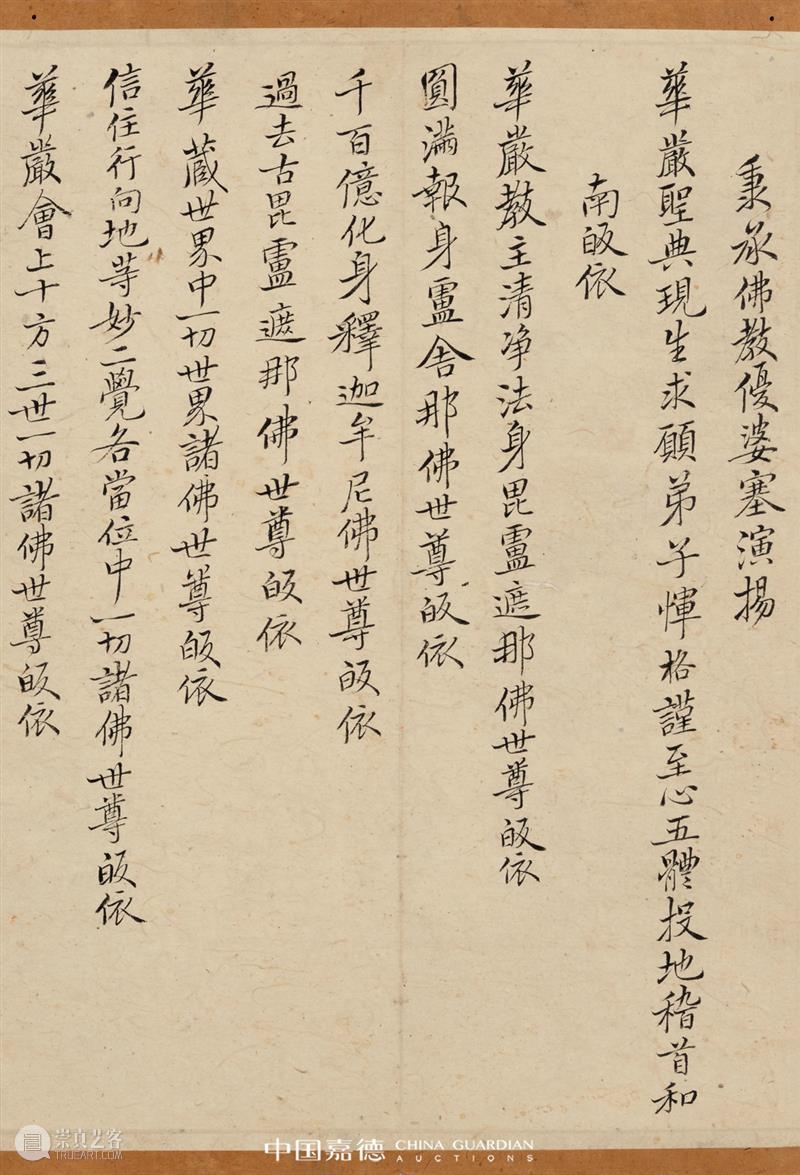 秉承佛教優婆塞演揚
華嚴聖典現生求願弟子惲格謹至心五體投地稽首和
南皈依
華嚴教主清净法身毘盧遮那佛世尊皈依
圓滿報身盧舍那佛世尊皈依
千百億化身釋迦牟尼佛世尊皈依
過去古毘盧遮那佛世尊皈依
華藏世界中一切世界諸佛世尊皈依
信住行向地等妙二覺各當位中一切諸佛世尊皈依
華嚴會上十方三世一切諸佛世尊皈依
崇真艺客
TRUEART.COM
中国嘉德 CHINA GUARDIAN
AUCTIONS